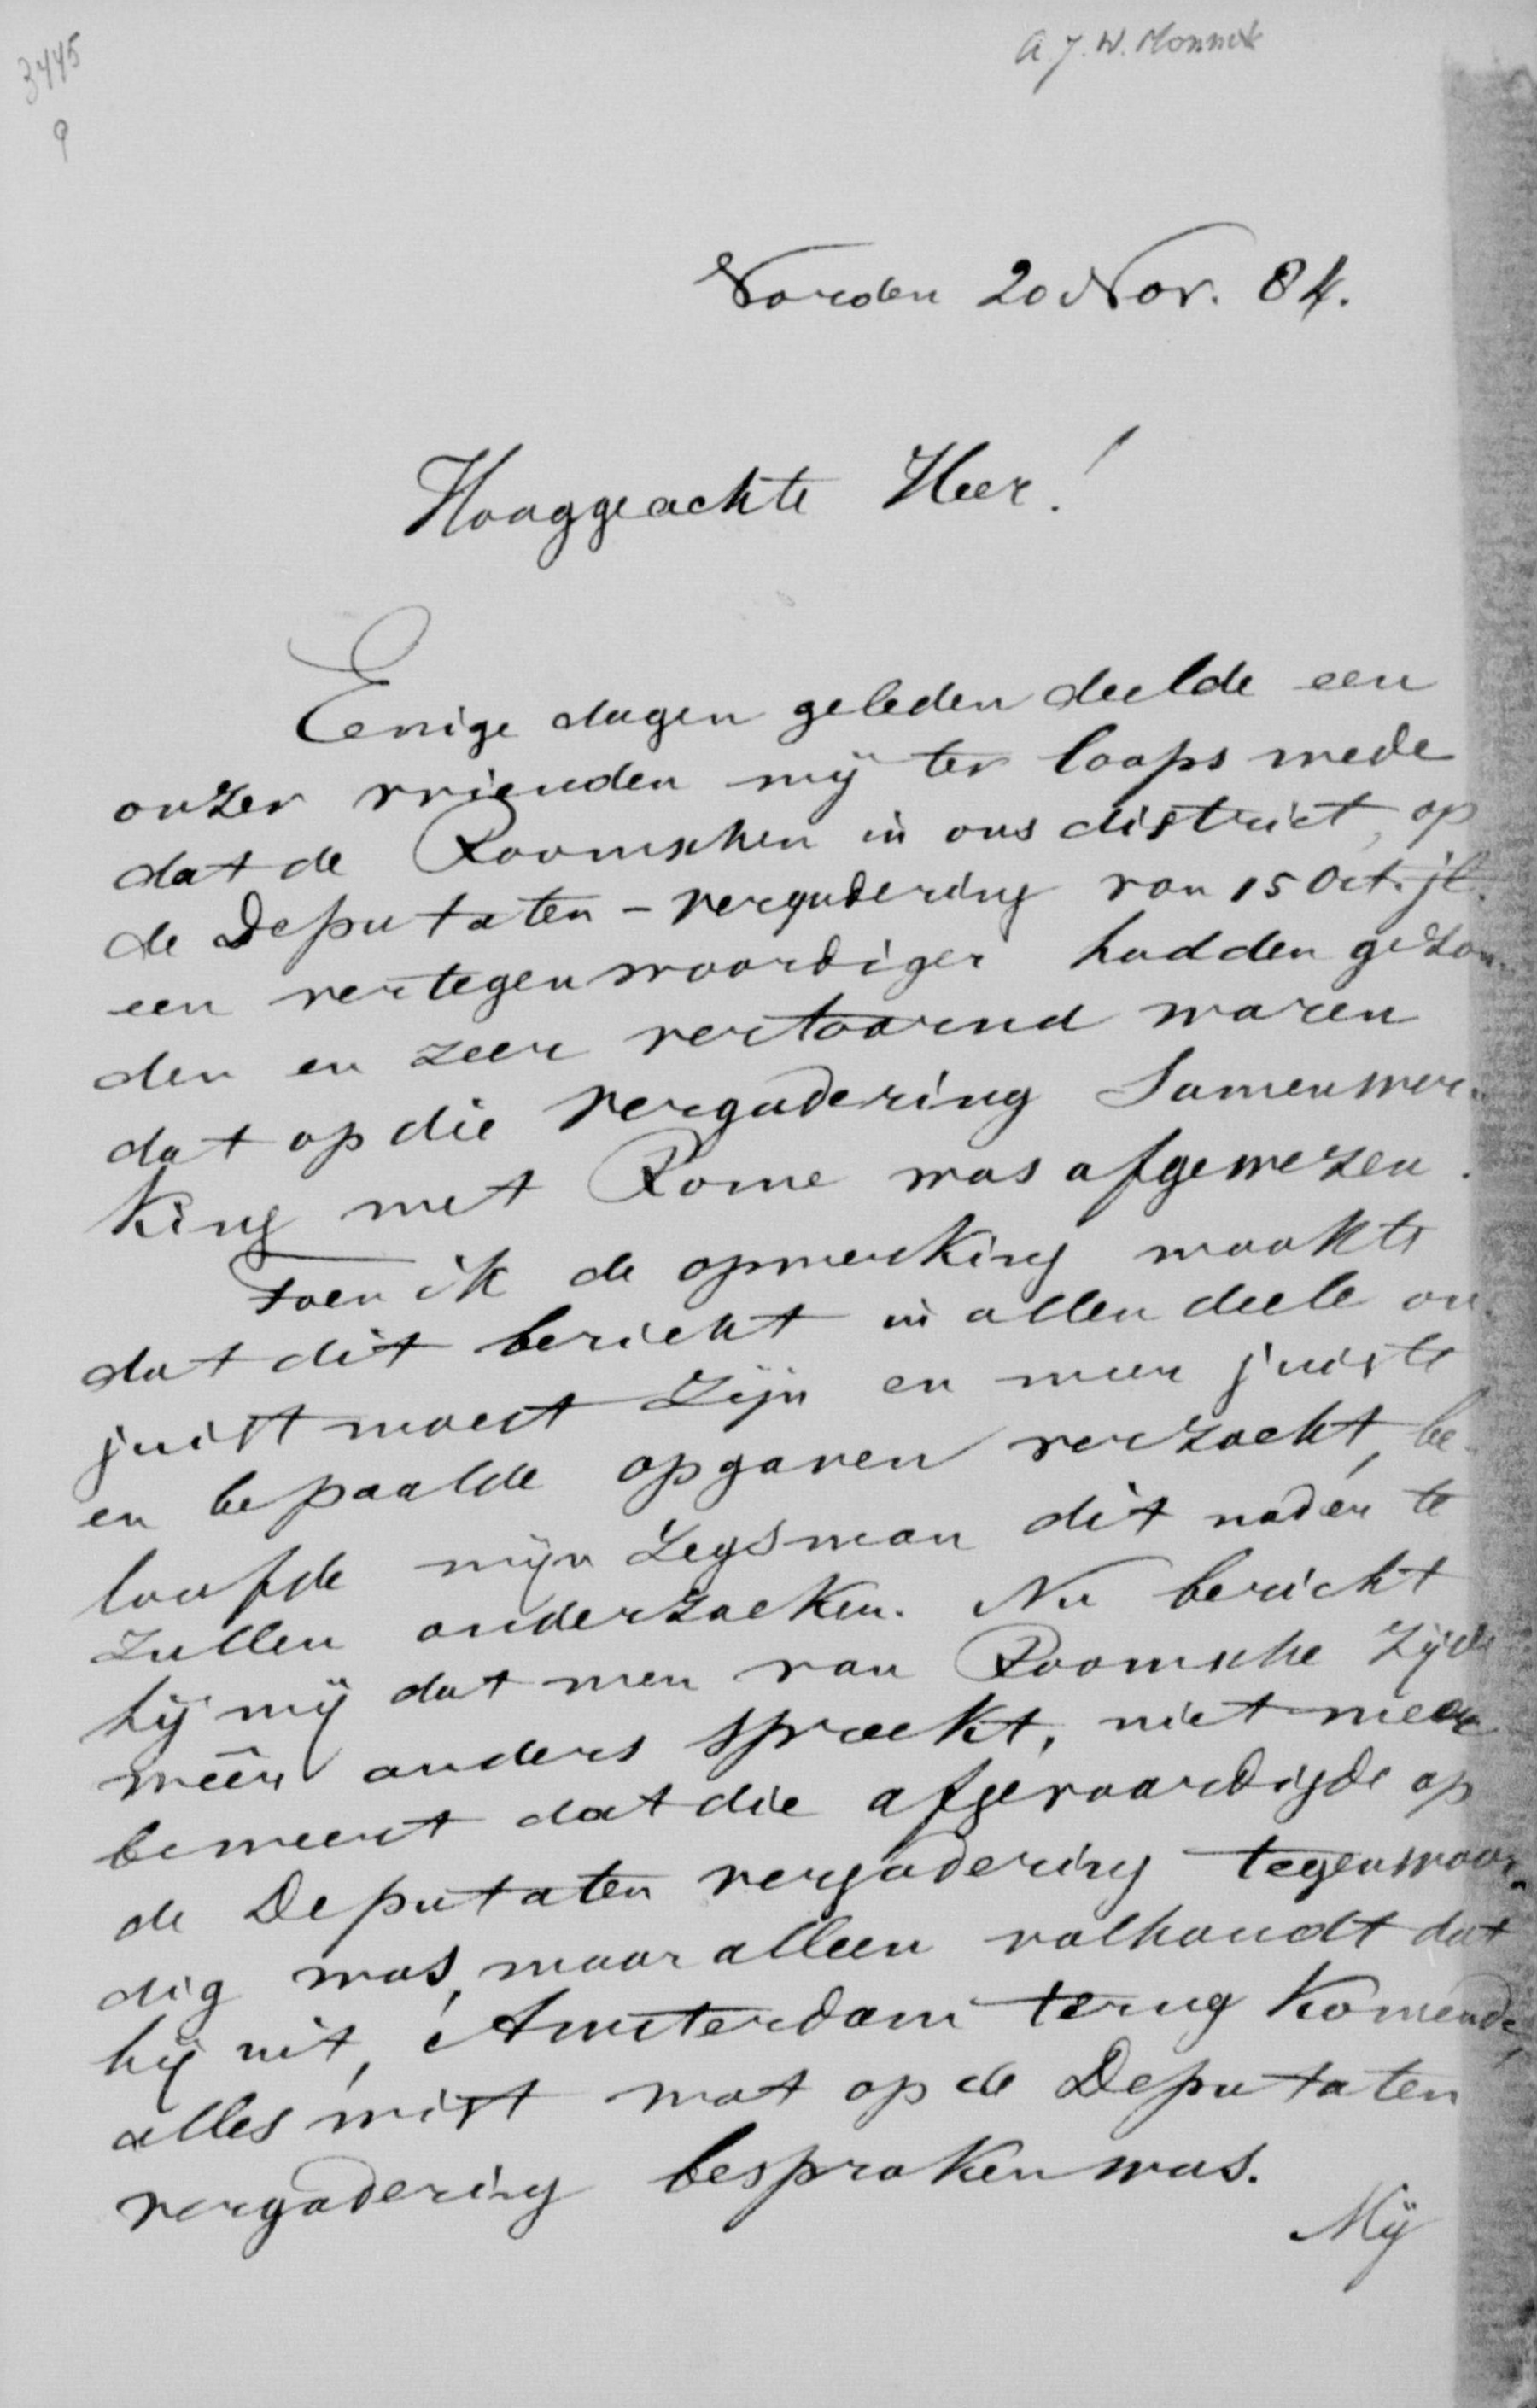 3445
9
A. J. W. Monnik
Vorden 20 Nov. 84.
Hooggeachte Heer!
Eenige dagen geleden deelde een
onzer vrienden mij ter loops mede
dat de Roomschen in ons district, op
de Deputaten-vergadering van 15 Oct. jl.
een vertegenwoordiger hadden gezon-
den en zeer vertoornd waren
dat op die vergadering Samenwer-
king met Rome was afgewezen.
Toen ik de opmerking maakte
dat dit bericht in allen deele on-
juist moest zijn en meer juiste
en bepaalde opgaven verzocht, be-
loofde mijn Zegsman dit nader te
zullen onderzoeken. Nu bericht
hij mij dat men van Roomsche zijde
nu anders spreekt, niet meer
beweert dat die afgevaardigde op
de Deputaten vergadering tegenwoor-
dig was, maar alleen volhoudt dat
hij uit, Amsterdam terug komende,
alles wist wat op de Deputaten
vergadering besproken was.
Mij